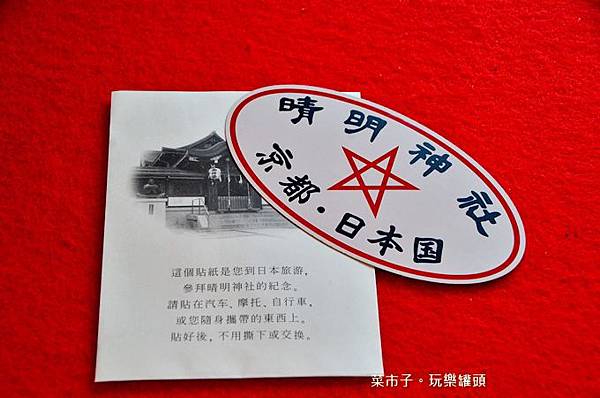 晴明神社
京都・日本国
這個貼紙是您到日本旅游,
參拜晴明神社的紀念。
請貼在汽车、摩托、自行車,
或您隨身攜帶的東西上。
貼好後, 不用撕下或交换。
菜市子。玩樂罐頭